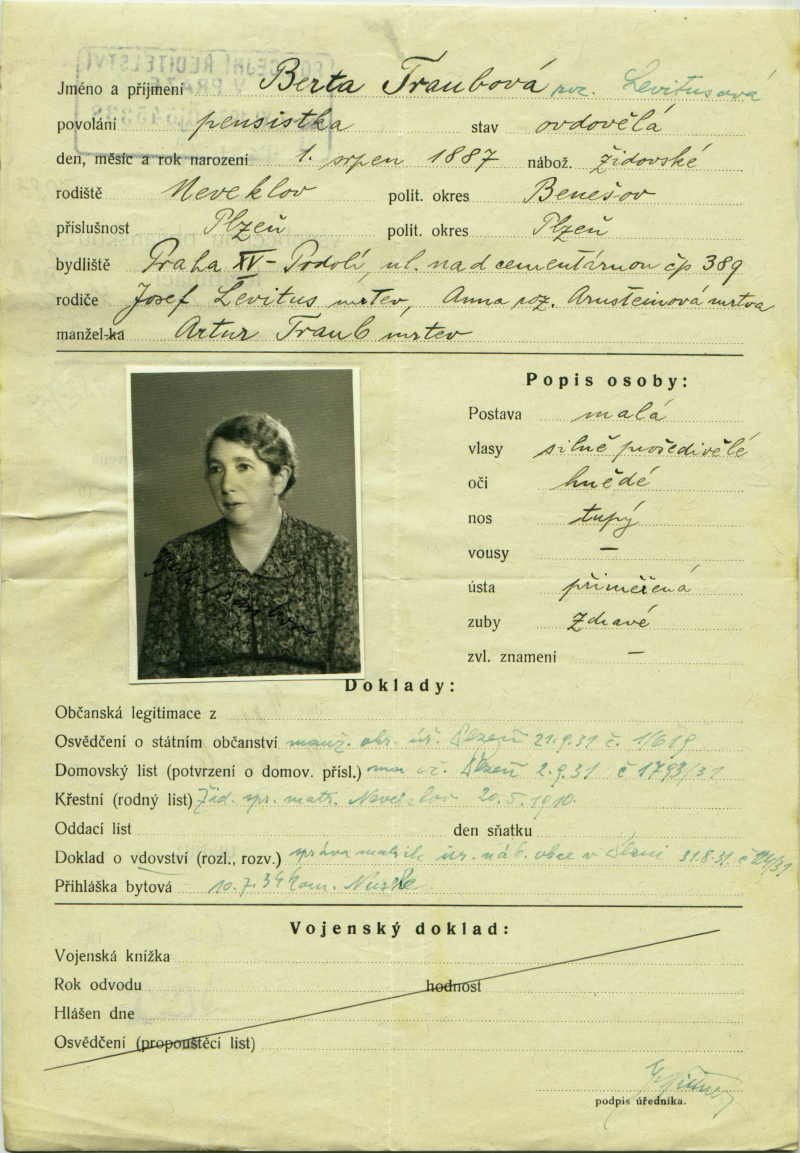 Jméno a příjmení Berta Traubová roz. Levitusová
povolání pensistka stav ovdovělá
den, měsíc a rok narození 1. srpen 1887 nábož. židovské
rodiště Neveklov polit. okres Benešov
příslušnost Plzeň polit. okres Plzeň
bydliště Praha XV – Podolí, ul. nad cementárnou čp 389
rodiče Josef Levitus mrtev, Anna roz. Arnsteinová mrtva
manžel-ka Artur Traub mrtev
Popis osoby:
Postava malá
vlasy silně prošedivělé
oči hnědé
nos tupý
vousy –
ústa přiměřená
zuby zdravé
zvl. znamení –
Doklady:
Občanská legitimace z
Osvědčení o státním občanství Plzeň 21.9.31 č.
Domovský list (potvrzení o domov. přísl.) Plzeň 2.9.31 č 1793/31
Křestní (rodný list) Žid. spr. matr. Neveklov 20.5.1910.
Oddací list den sňatku
Doklad o vdovství (rozl., rozv.) správa matrik náb. obce v Plzni 31.8.31. č
Přihláška bytová 10.7.34 kom. Nusle
Vojenský doklad:
Vojenská knížka
Rok odvodu hodnost
Hlášen dne
Osvědčení (propouštěcí list)
podpis úředníka.